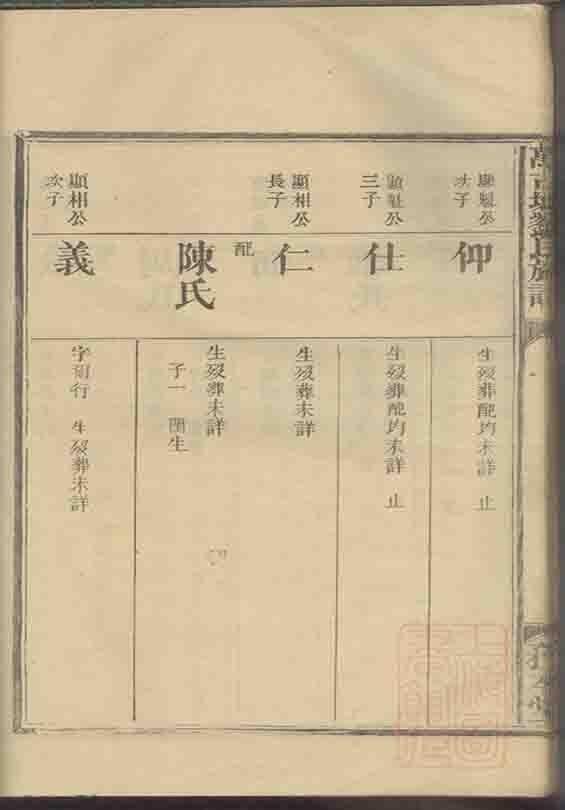 顯魁公
次子
仰
生歿葬配均未詳 止
顯魁公
三子
仕
生歿葬配均未詳 止
顯相公
長子
仁
生歿葬未詳
配
陳氏
生歿葬未詳
子一 開生
顯相公
次子
義
字 行 生歿葬未詳